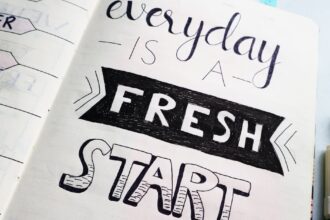 everyday
- IS - A -
FRESH
START